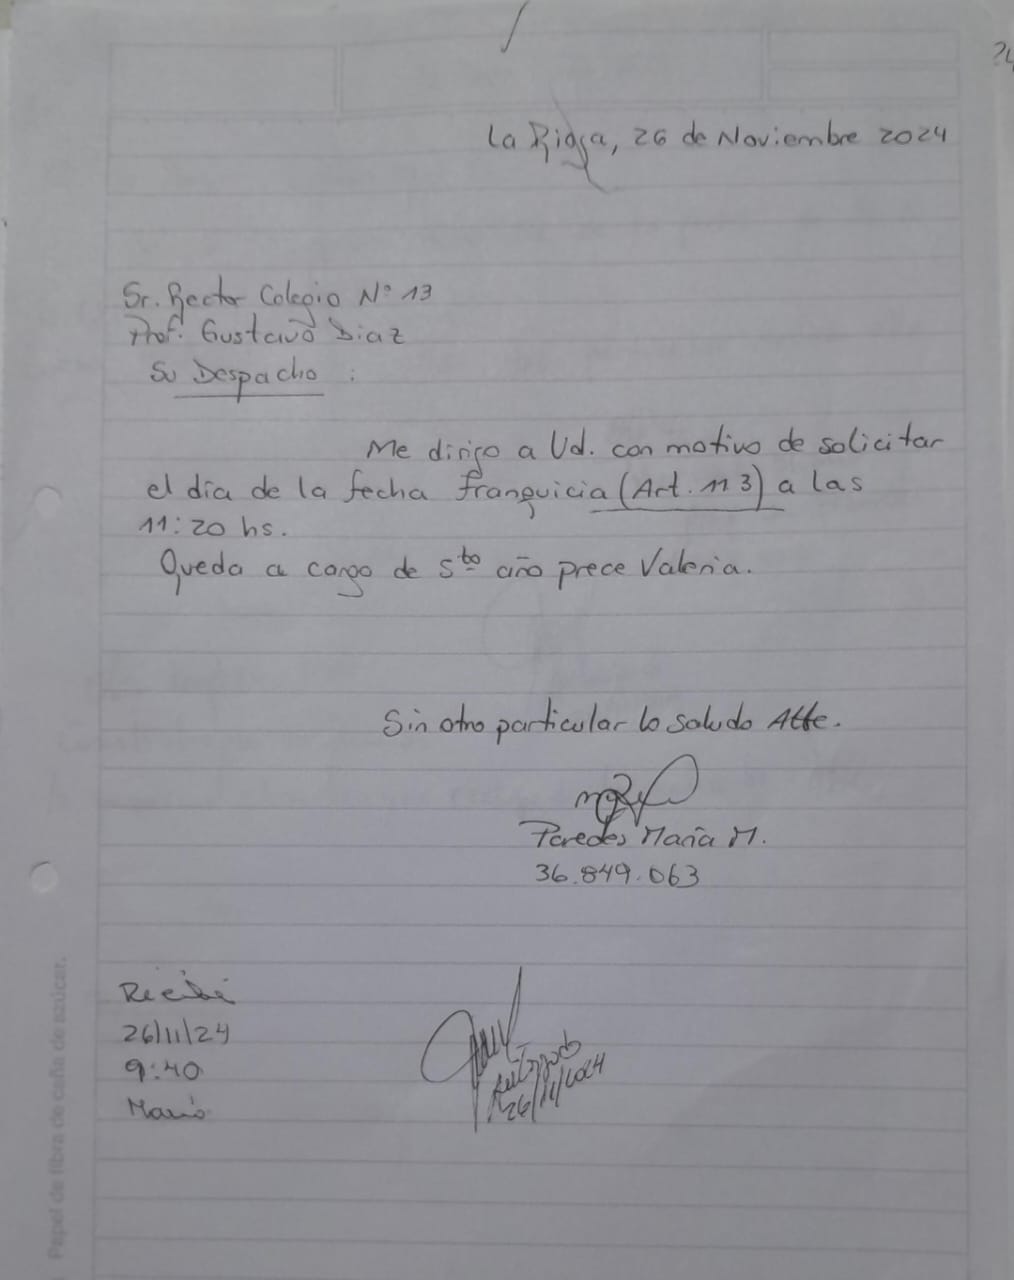 La Rioja, 26 de Noviembre 2024
Sr. Rector Colegio N° 13
Prof. Gustavo Diaz
Su Despacho :
Me dirijo a Ud. con motivo de solicitar
el día de la fecha franquicia (Art. 113) a las
11:20 hs.
Queda a cargo de 5to año prece Valeria.
Sin otro particular lo saludo Atte.
Paredes María M.
36.849.063
Recibí
26/11/24
9:40
Autorizado
26/11/2024
Papel de fibra de caña de azúcar.